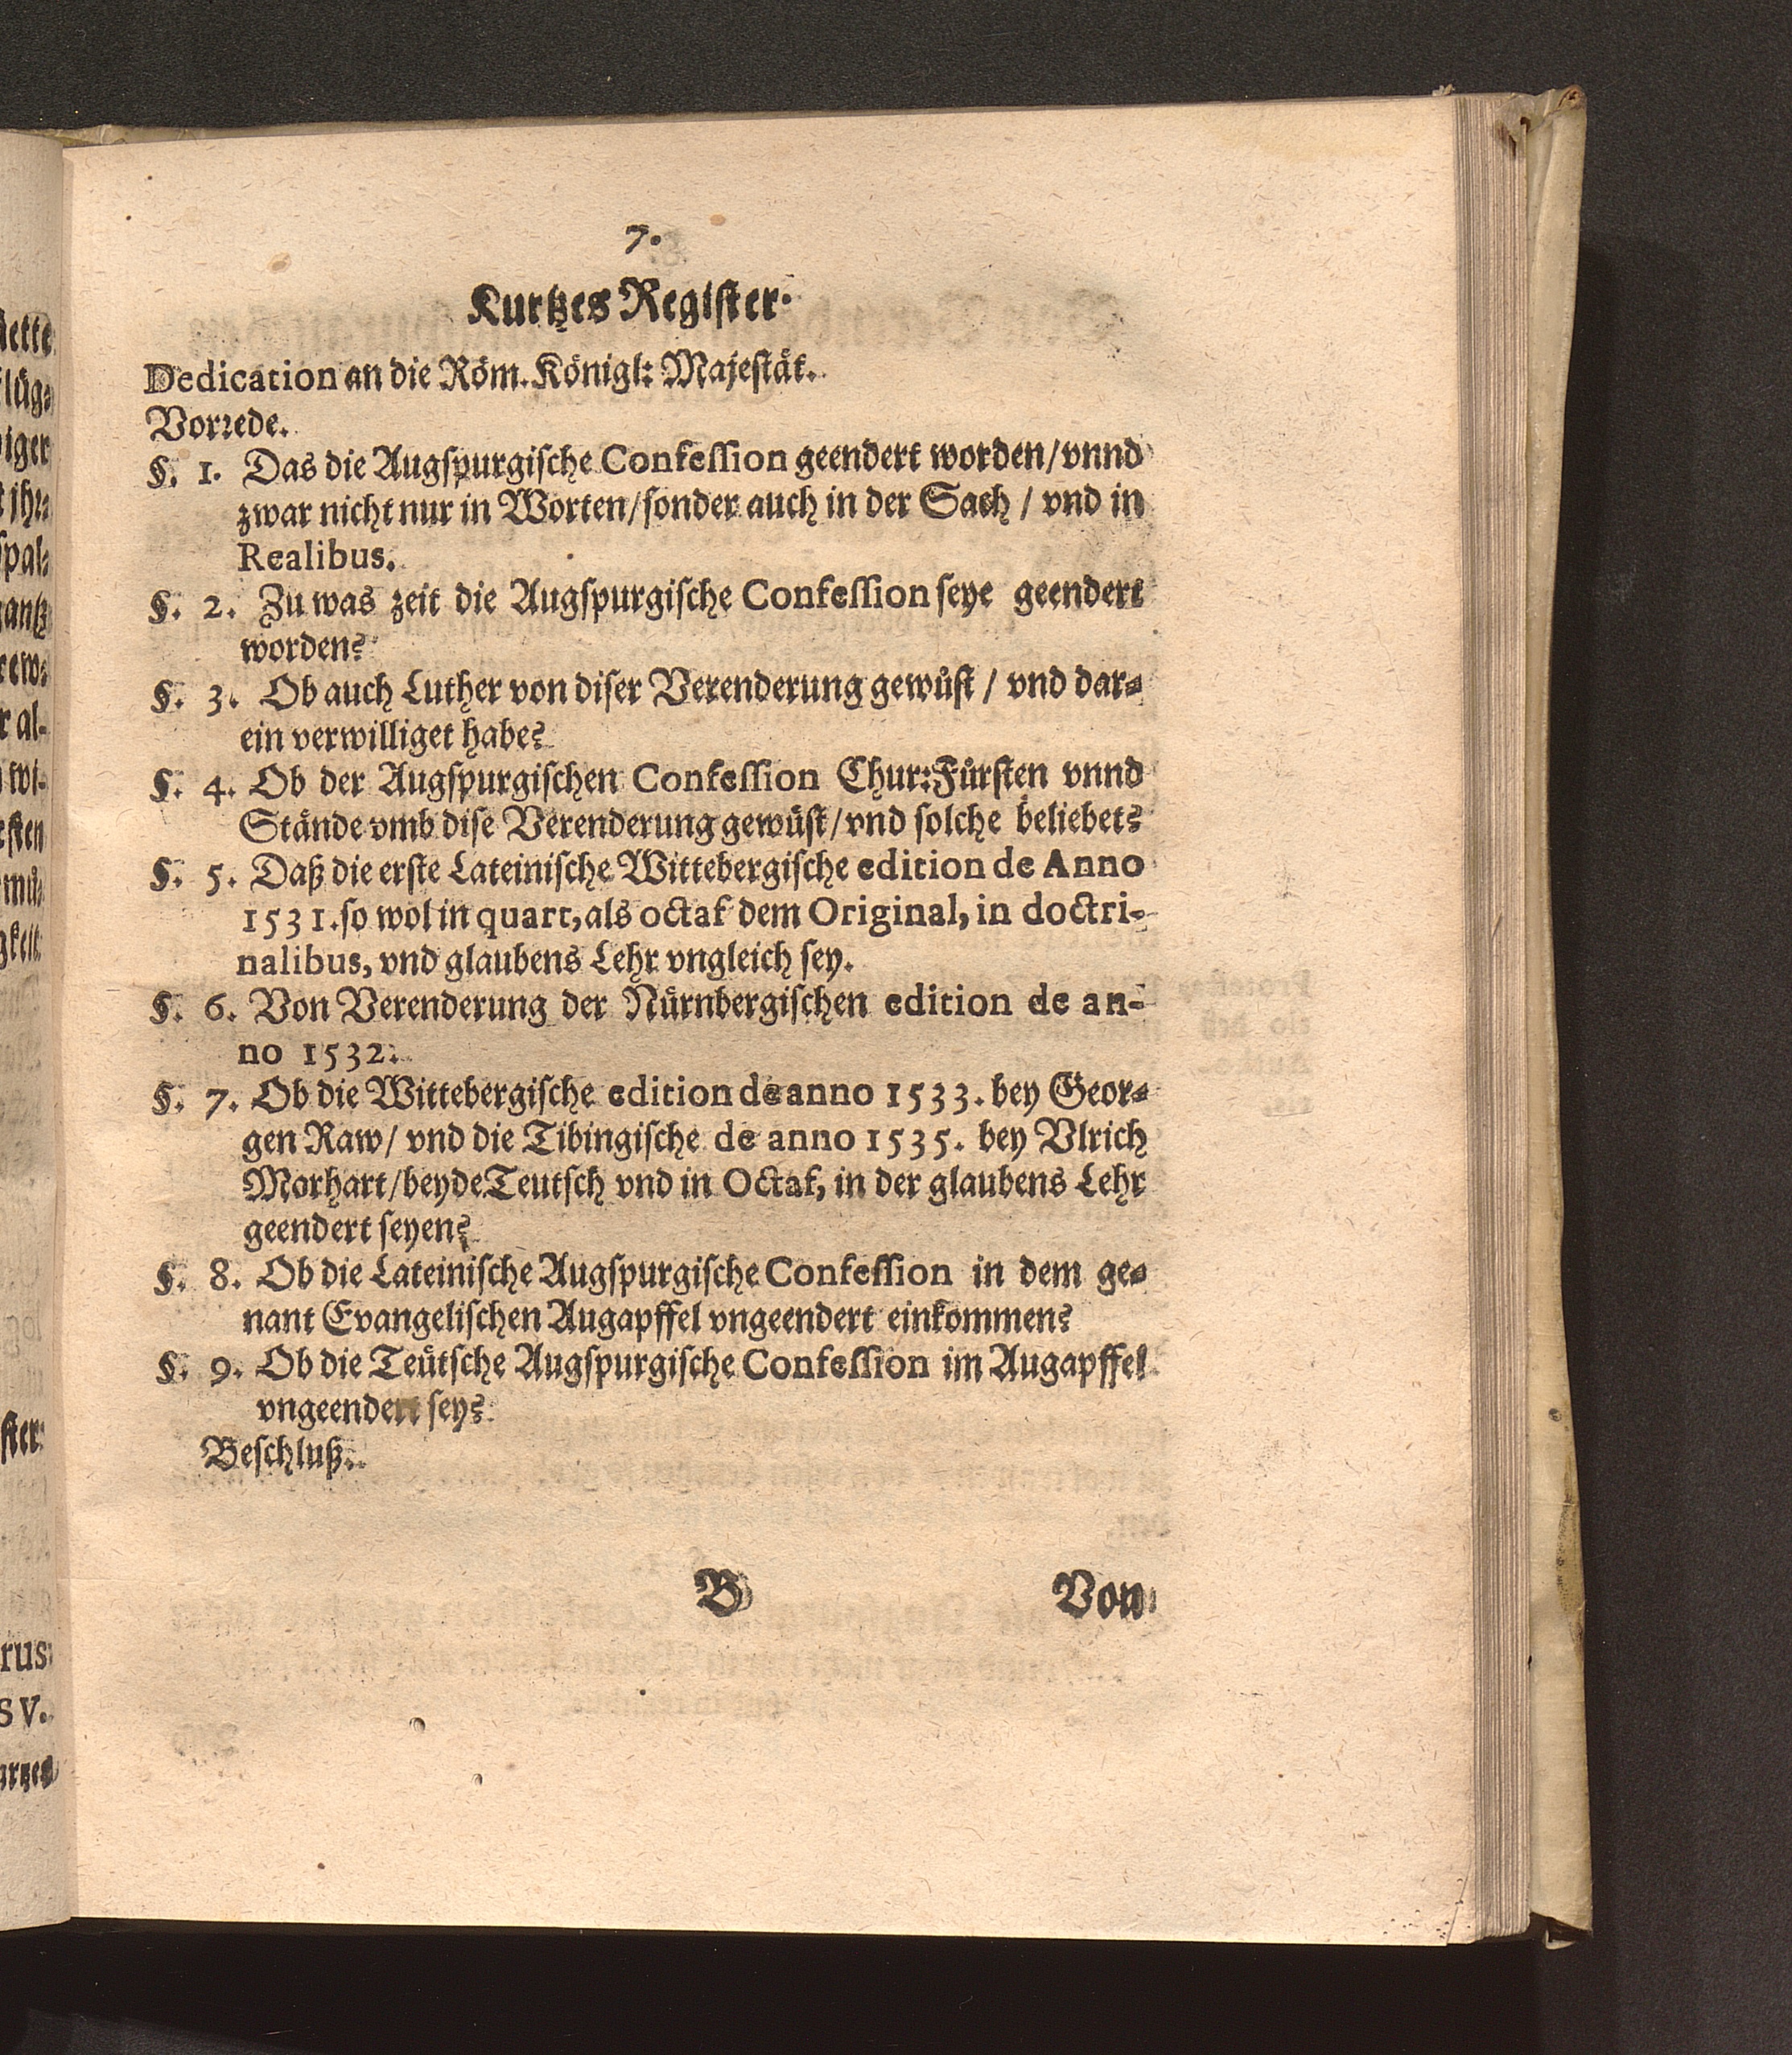 7.
Kurtzes Register.
Dedication an die Röm. Königl: Majestät.
Vorrede.
§. 1. Das die Augspurgische Confession geendert worden/vnnd
zwar nicht nur in Worten/sonder auch in der Sach / vnd in
Realibus.
§. 2. Zu was zeit die Augspurgische Confession seye geendert
worden?
§. 3. Ob auch Luther von diser Verenderung gewüst / vnd dar-
ein verwilliget habe?
§. 4. Ob der Augspurgischen Confession Chur:Fürsten vnnd
Stände vmb dise Verenderung gewüst/vnd solche beliebet?
§. 5. Daß die erste Lateinische Wittebergische edition de Anno
1531. so wol in quart, als octaf dem Original, in doctri-
nalibus, vnd glaubens Lehr vngleich sey.
§. 6. Von Verenderung der Nürnbergischen edition de an-
no 1532.
§. 7. Ob die Wittebergische edition de anno 1533. bey Geor-
gen Raw/ vnd die Tibingische de anno 1535. bey Vlrich
Morhart/beyde Teutsch vnd in Octaf, in der glaubens Lehr
geendert seyen?
§. 8. Ob die Lateinische Augspurgische Confession in dem ge-
nant Evangelischen Augapffel vngeendert einkommen?
§. 9. Ob die Teütsche Augspurgische Confession im Augapffel
vngeendert sey?
Beschluß.
B Von